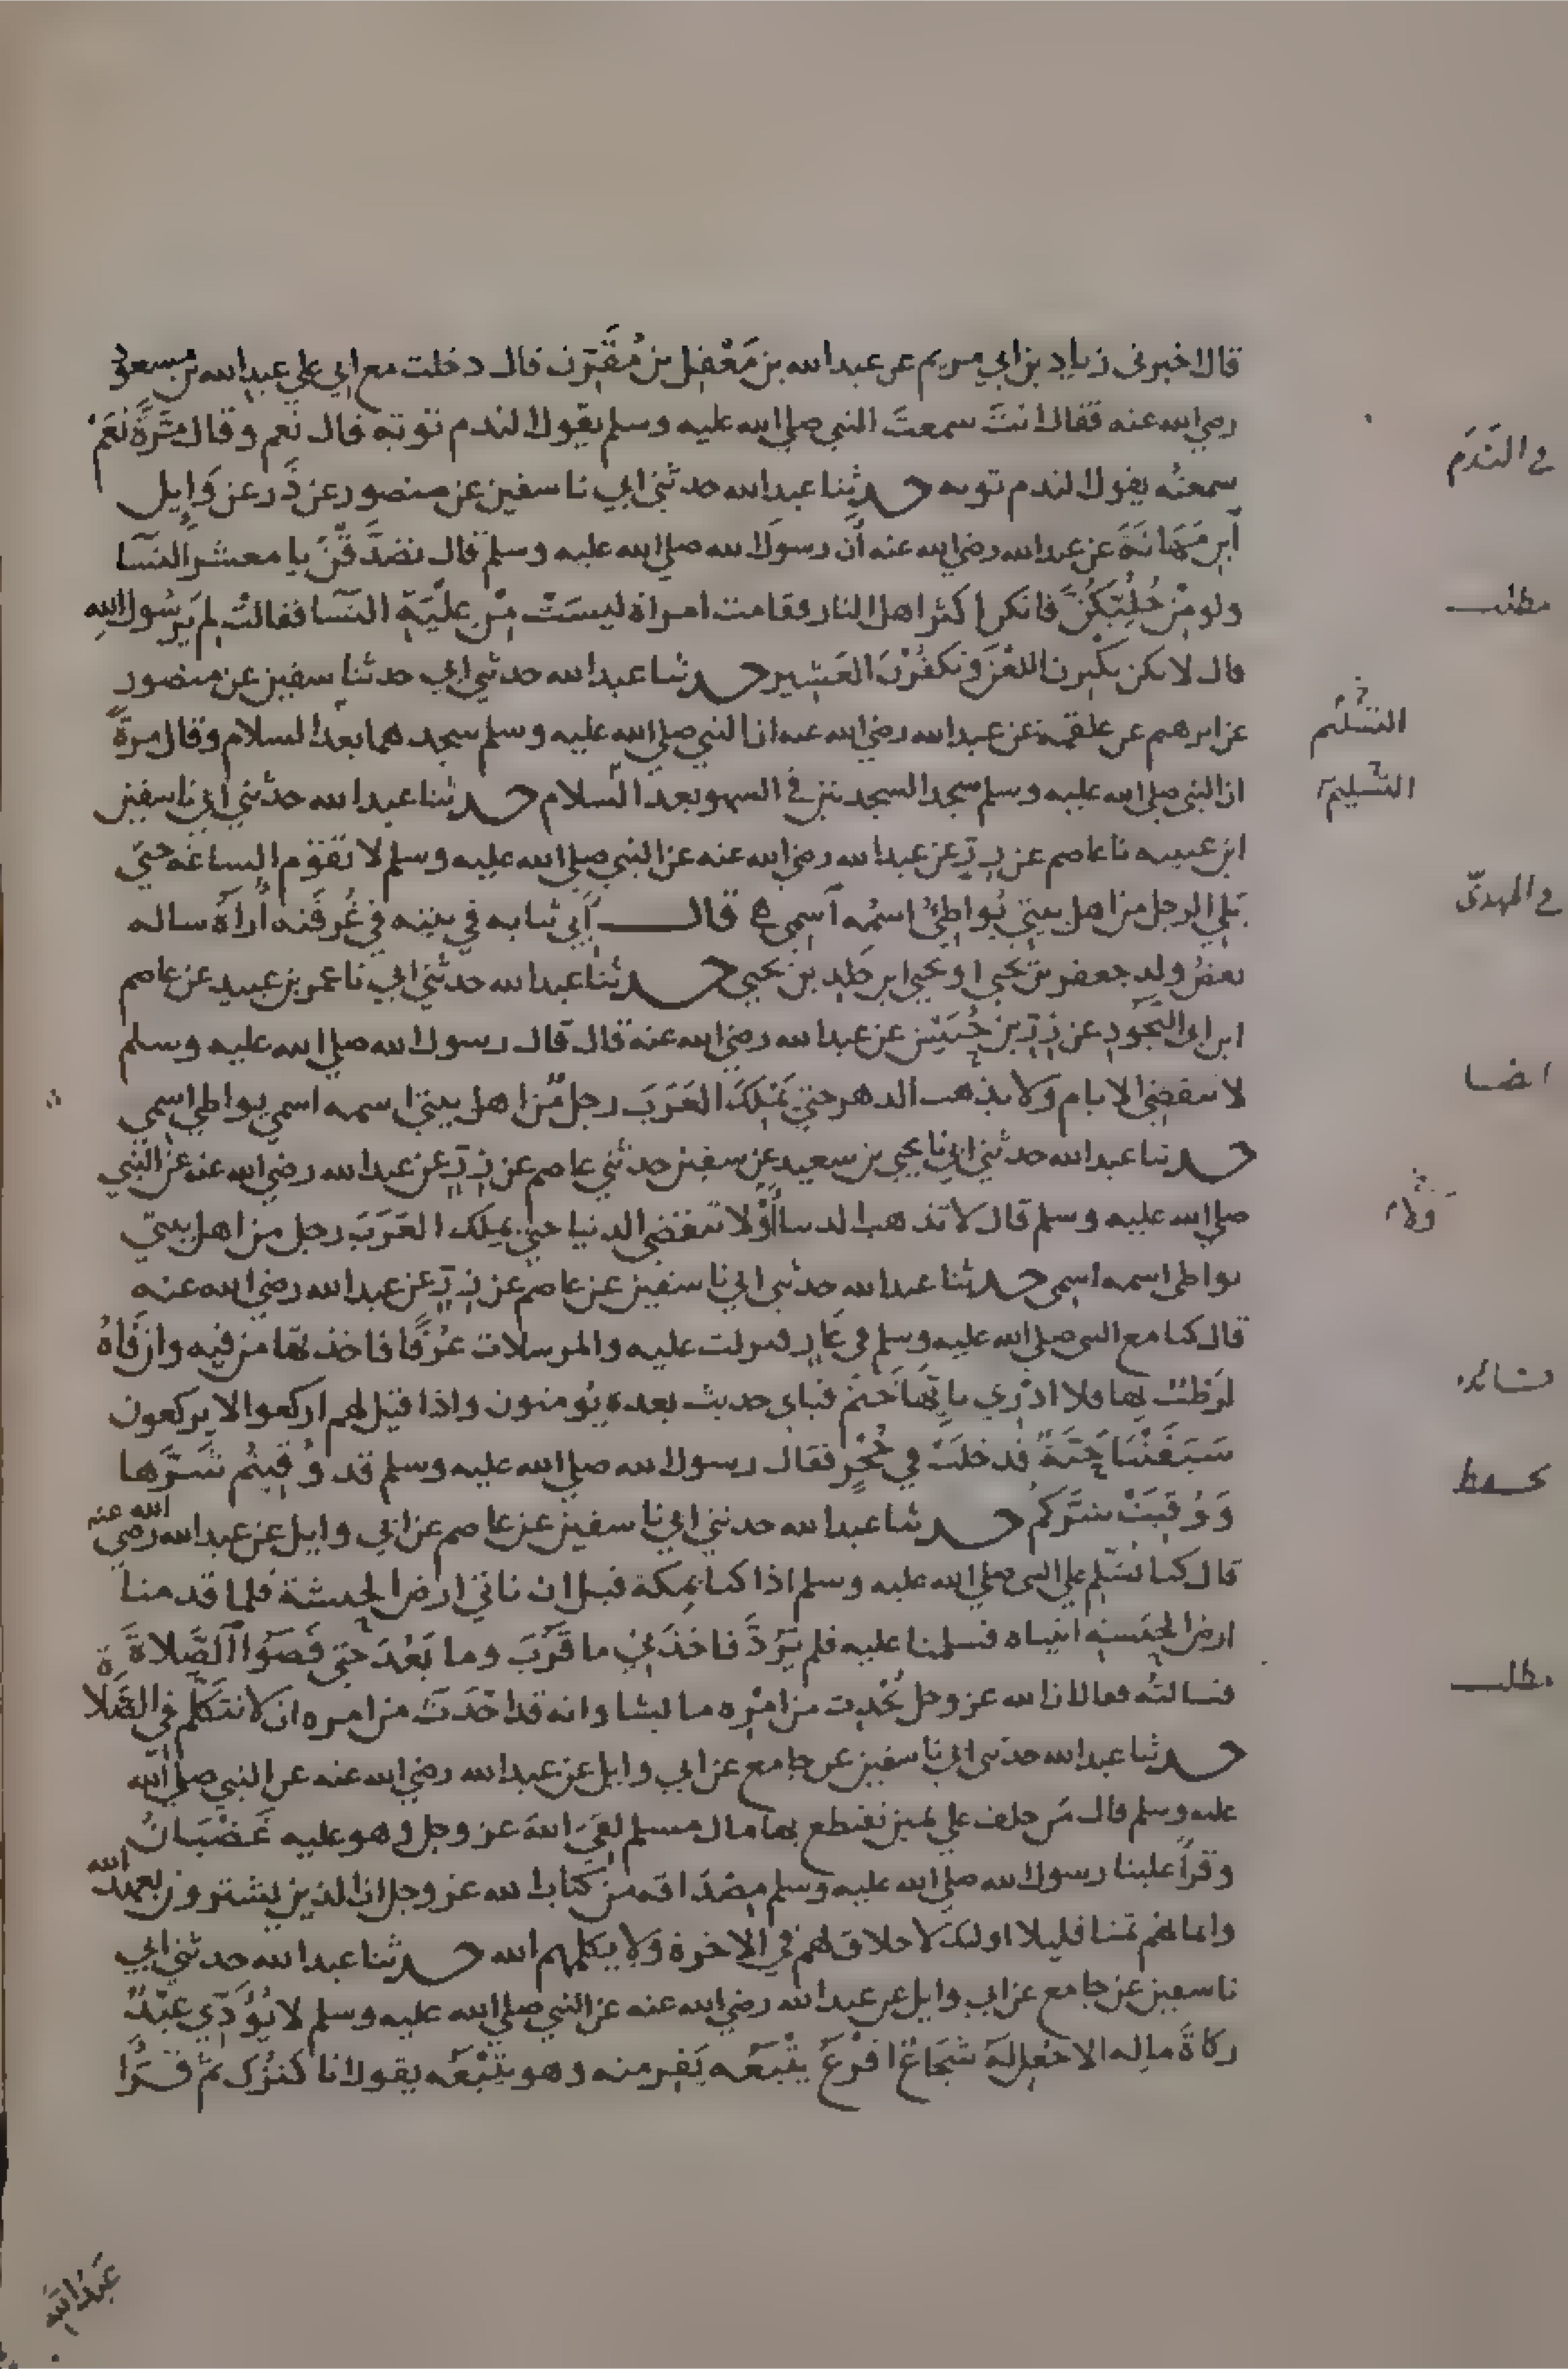 قال اخبرنى زياد بن ابي مريم عن عبد الله بن مَعْقِل بن مُقَرِّن قال دخلت مع ابي علي عبد الله بن مسعود
رضي الله عنه فقال انتَ سمعتَ النبي صلي الله عليه وسلم يقول الندم توبه قال نَعَم وقال مَرَّةً نَعَمْ
سمعتُه يقول الندم توبه حدثنا عبد الله حدثني ابي نا سفين عن منصور عن ذَر عن وَايِل
ابنِ مَهَانَةَ عن عبد الله رضي الله عنه أن رسول الله صلي الله عليه وسلم قال تصَدَّقْنَ يا معشر النسآ
ولو مِنْ حُلِيِّكُنَّ فانكن اكثر اهل النار فقامت امراة ليسَتْ مِن عِلْيَةِ النسآ فقالت لِمَ يَرسُول الله
قال لانكن تكثِرن اللعْنَ وتكفُرْنَ العَشِير حدثنا عبد الله حدثني ابي حدثنا سفين عن منصور
عن ابرهيم عن علقمة عن عبد الله رضي الله عنه ان النبي صلي الله عليه وسلم سجدهما بعد السلام وقال مرةً
ان النبي صلي الله عليه وسلم سجد السجدتين في السهو بعد السلام حدثنا عبد الله حدثني ابي نا سفين
ابن عيينه نا عاصم عن زِرٍّ عن عبد الله رضي الله عنه عن النبي صلي الله عليه وسلم لا تقوم الساعة حتي
يَلِي الرجل من اهل بيتي يُواطِئُ اسمُه اسمِي قال أبي ثنا به في بيته في غُرفَته أُراهُ ساله
بعضُ ولدِ جعفر بن يحيي او يحيي ابن خلِد بن يحيي حدثنا عبد الله حدثني ابي نا عمر بن عبيد عن عاصم
ابن ابى النَّجودِ عن زِرِّ بن حُبَيْش عن عبد الله رضي الله عنه قال قال رسول الله صلي الله عليه وسلم
لا تنقضِي الايام ولا يذهب الدهر حتي يَمْلِكَ العَرَبَ رجل مِن اهل بيتي اسمه اسمي يواطي اسمي
حدثنا عبد الله حدثني ابي نا يحيي بن سعيد عن سفين حدثني عاصم عن زِرٍّ عن عبد الله رضي الله عنه عن النبي
صلي الله عليه وسلم قال لا تذهب الدنيا أوْ لا تنقضي الدنيا حتي يملِك العَرَبَ رجل من اهل بيتي
يواطى اسمه اسمِي حدثنا عبد الله حدثني ابي نا سفين عن عاصم عن زِرٍّ عن عبد الله رضي الله عنه
قال كنا مع النبي صلي الله عليه وسلم في غارٍ فنزلت عليه والمرسلات عُرْفًا فاخذتها من فيه وان فَاهُ
لرَطْبٌ بها فلا ادْرِي بايِّها خَتَمَ فباى حديث بعده يُومنون واذا قيل لهم اركعوا لا يركعون
سَبَقَتْنَا حَيَّةٌ فدخلَتْ في جُحْرٍ فقال رسول الله صلي الله عليه وسلم قد وُقِيتُم شَرَّها
وَوُقيَتْ شَرَّكُم حدثنا عبد الله حدثني ابي نا سفين عن عاصم عن ابي وايل عن عبد الله رضي الله عنه
قال كنا نُسَلِّم علي النبي صلي الله عليه وسلم اذا كنا بمكة قبل ان ناتي ارض الحبشة فلما قدمنا
ارض الحبشه اتيناه فسلمنا عليه فلم يَرُدَّ فاخذَني ما قَرُبَ وما بَعُدَ حتي قَضَوا الصَّلاةَ
فسالتُه فقال ان الله عز وجل يُحْدِث من امْرِه ما يشا وانه قد احْدَثَ من امره ان لا نتكلم في الصَّلاة
حدثنا عبد الله حدثني ابي نا سفين عن جامع عن ابي وايل عن عبد الله رضي الله عنه عن النبي صلي الله
عليه وسلم قال مَن حلف علي يمين يقتطع بها مال مسلم لقيَ اللهَ عز وجل وهو عليه غَضْبَانُ
وقراَ علينا رسول الله صلي الله عليه وسلم مِصْدَاقه من كتاب الله عز وجل ان الذين يشترون بعهد الله
وايمانهم ثمنا قليلا اوليك لا خلاق لهم في الاخرة ولا يكلمهم الله حدثنا عبد الله حدثني ابي
نا سفين عن جامع عن ابي وايل عن عبد الله رضي الله عنه عن النبي صلي الله عليه وسلم لا يُؤَدِّي عَبْدٌ
زكاةَ مالِه الا جُعِل لهُ شُجَاعٌ اقرعُ يتْبَعُه يَفِر منه وهو يتْبَعُه يقول انا كنزُك ثم قرا
عبد الله
في النَدَم
مطلب
التسليم
في المهدىّ
ايضا
ولا
فائده
مطلب